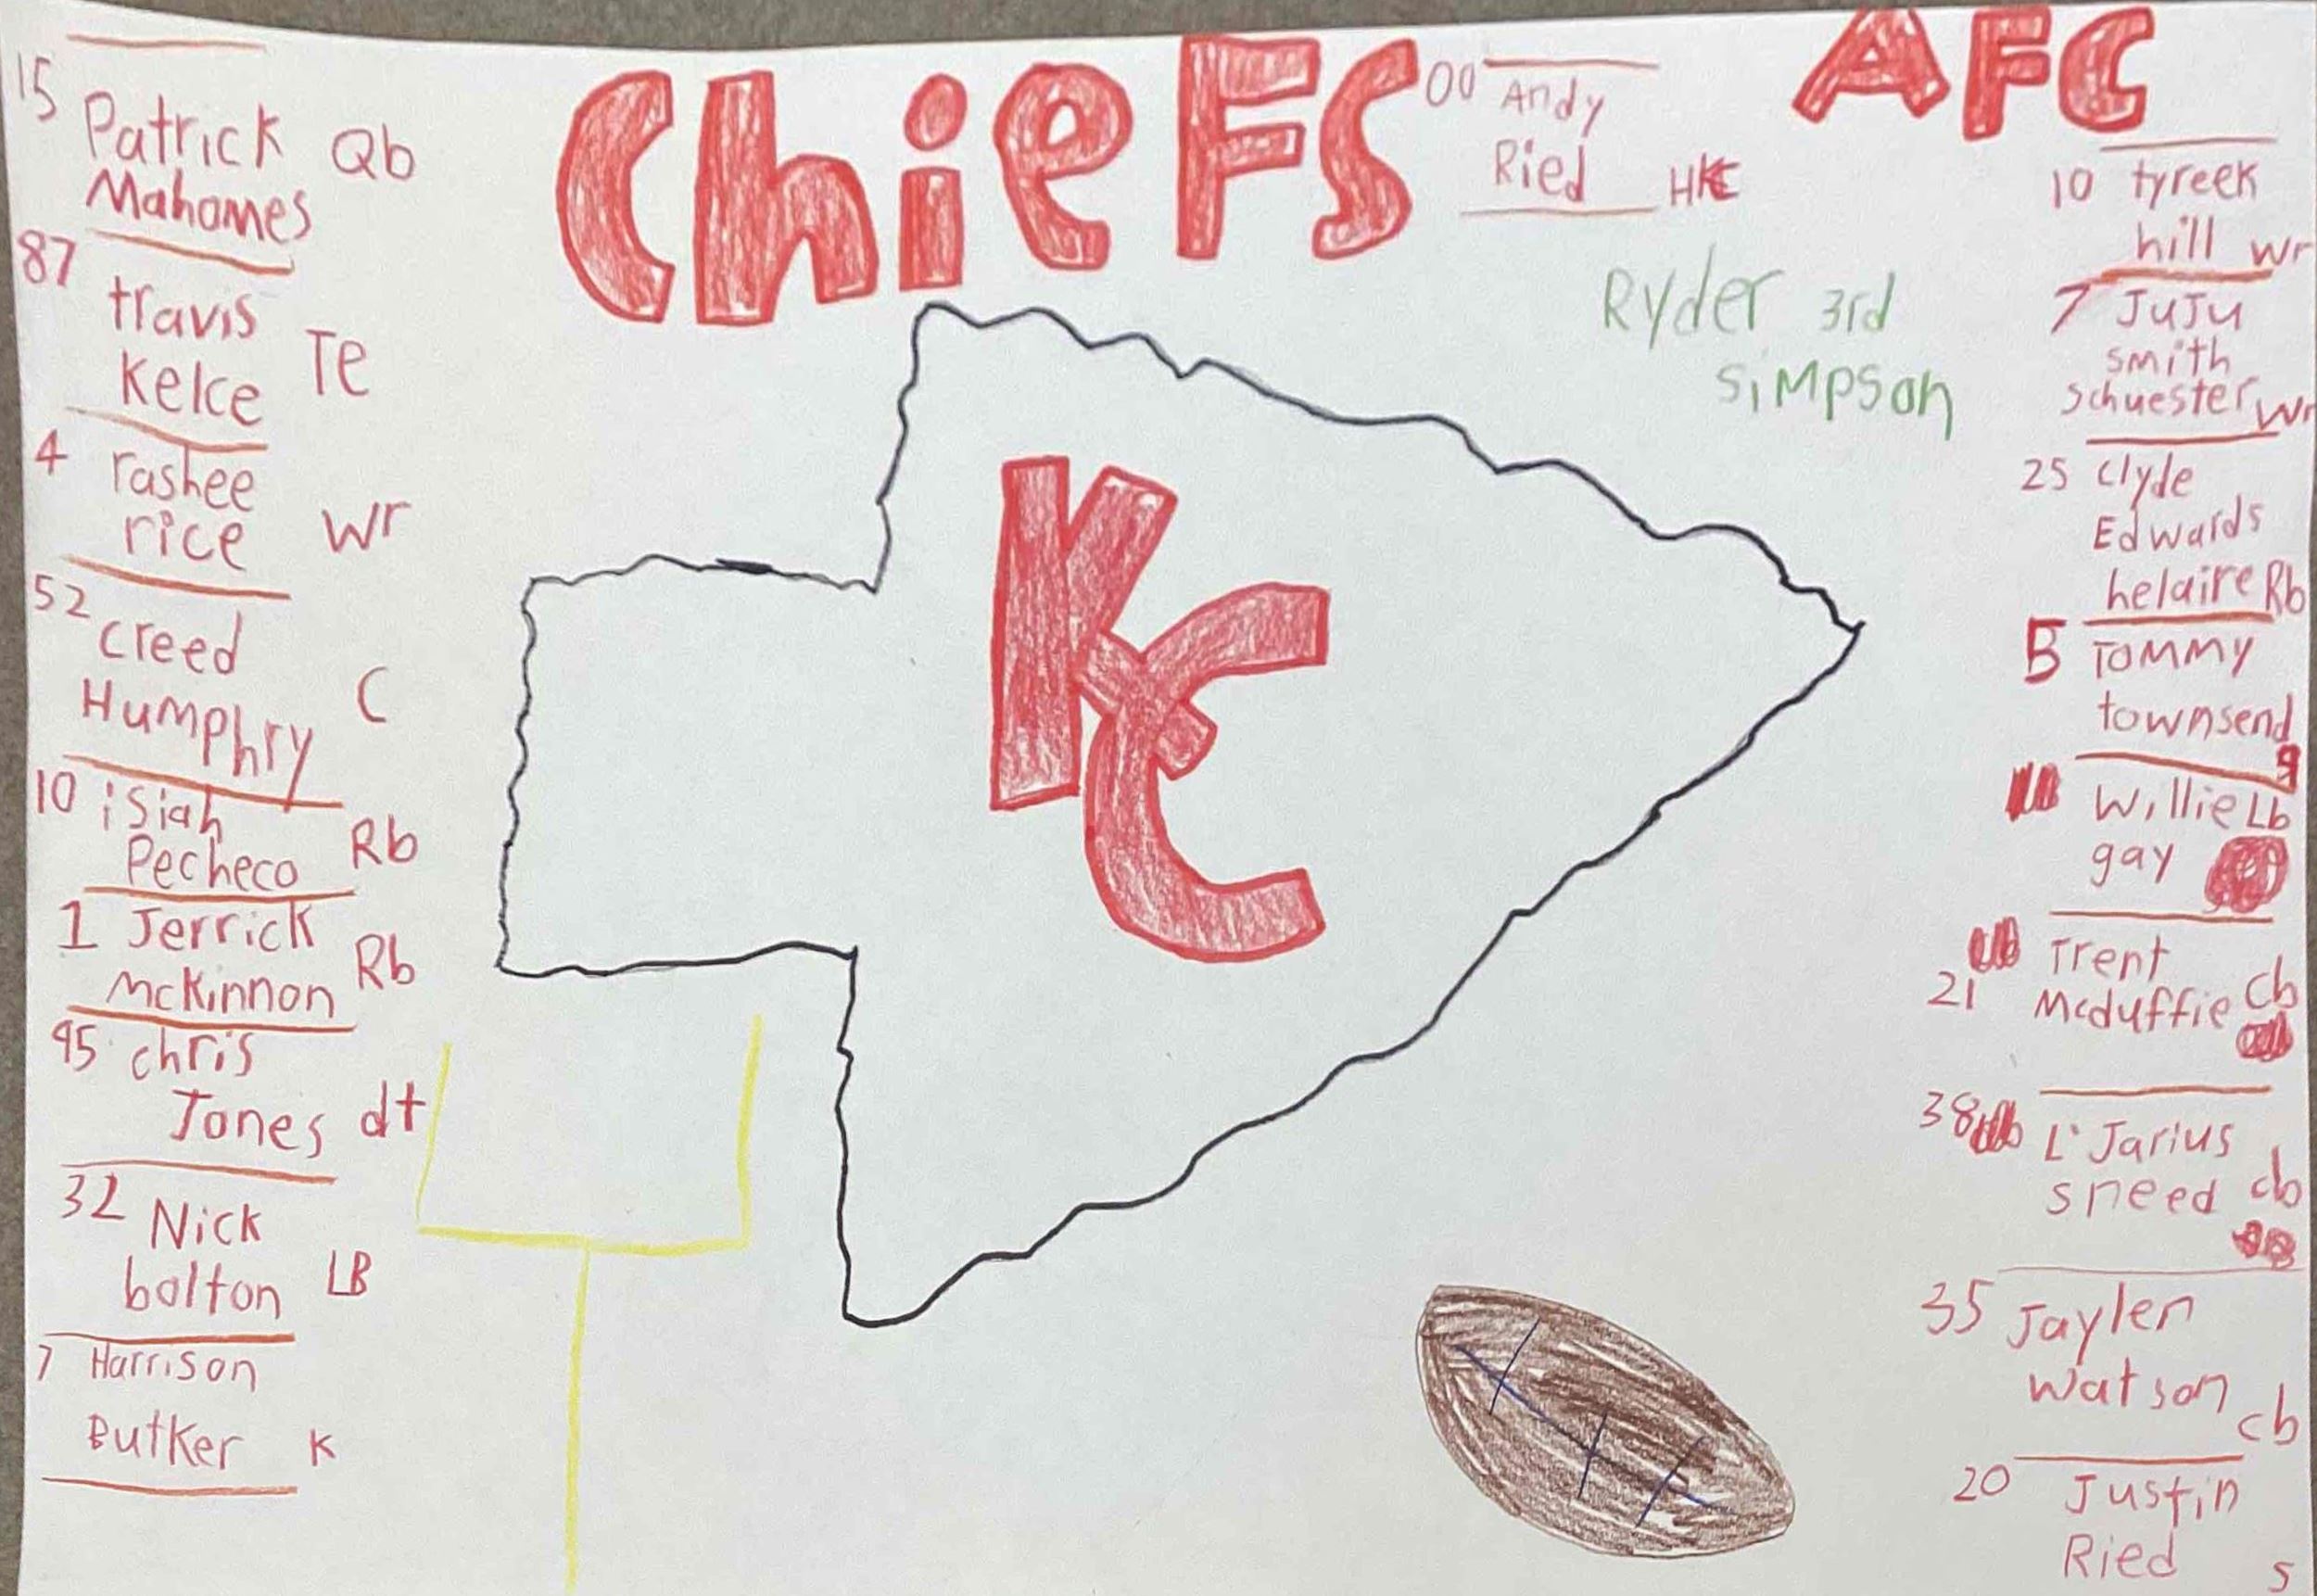 15
Patrick Qb
Mahomes
87
travis
Kelce Te
4
rashee
rice wr
52
creed
Humphry C
10 isiah
Pecheco Rb
1 Jerrick
McKinnon Rb
95 chris
Jones dt
32
Nick
bolton LB
7 Harrison
Butker K
ChieFS
KC
00 Andy
Ried
Ryder 3rd
simpson
AFC
10 tyreek
hill wr
7 JuJu
smith
schuester wr
25 Clyde
Edwards
helaire Rb
5 Tommy
townsend
Willie Lb
gay
Trent
21 Mcduffie Cb
38 L'Jarius
sneed cb
35 Jaylen
watson cb
20 Justin
Ried s